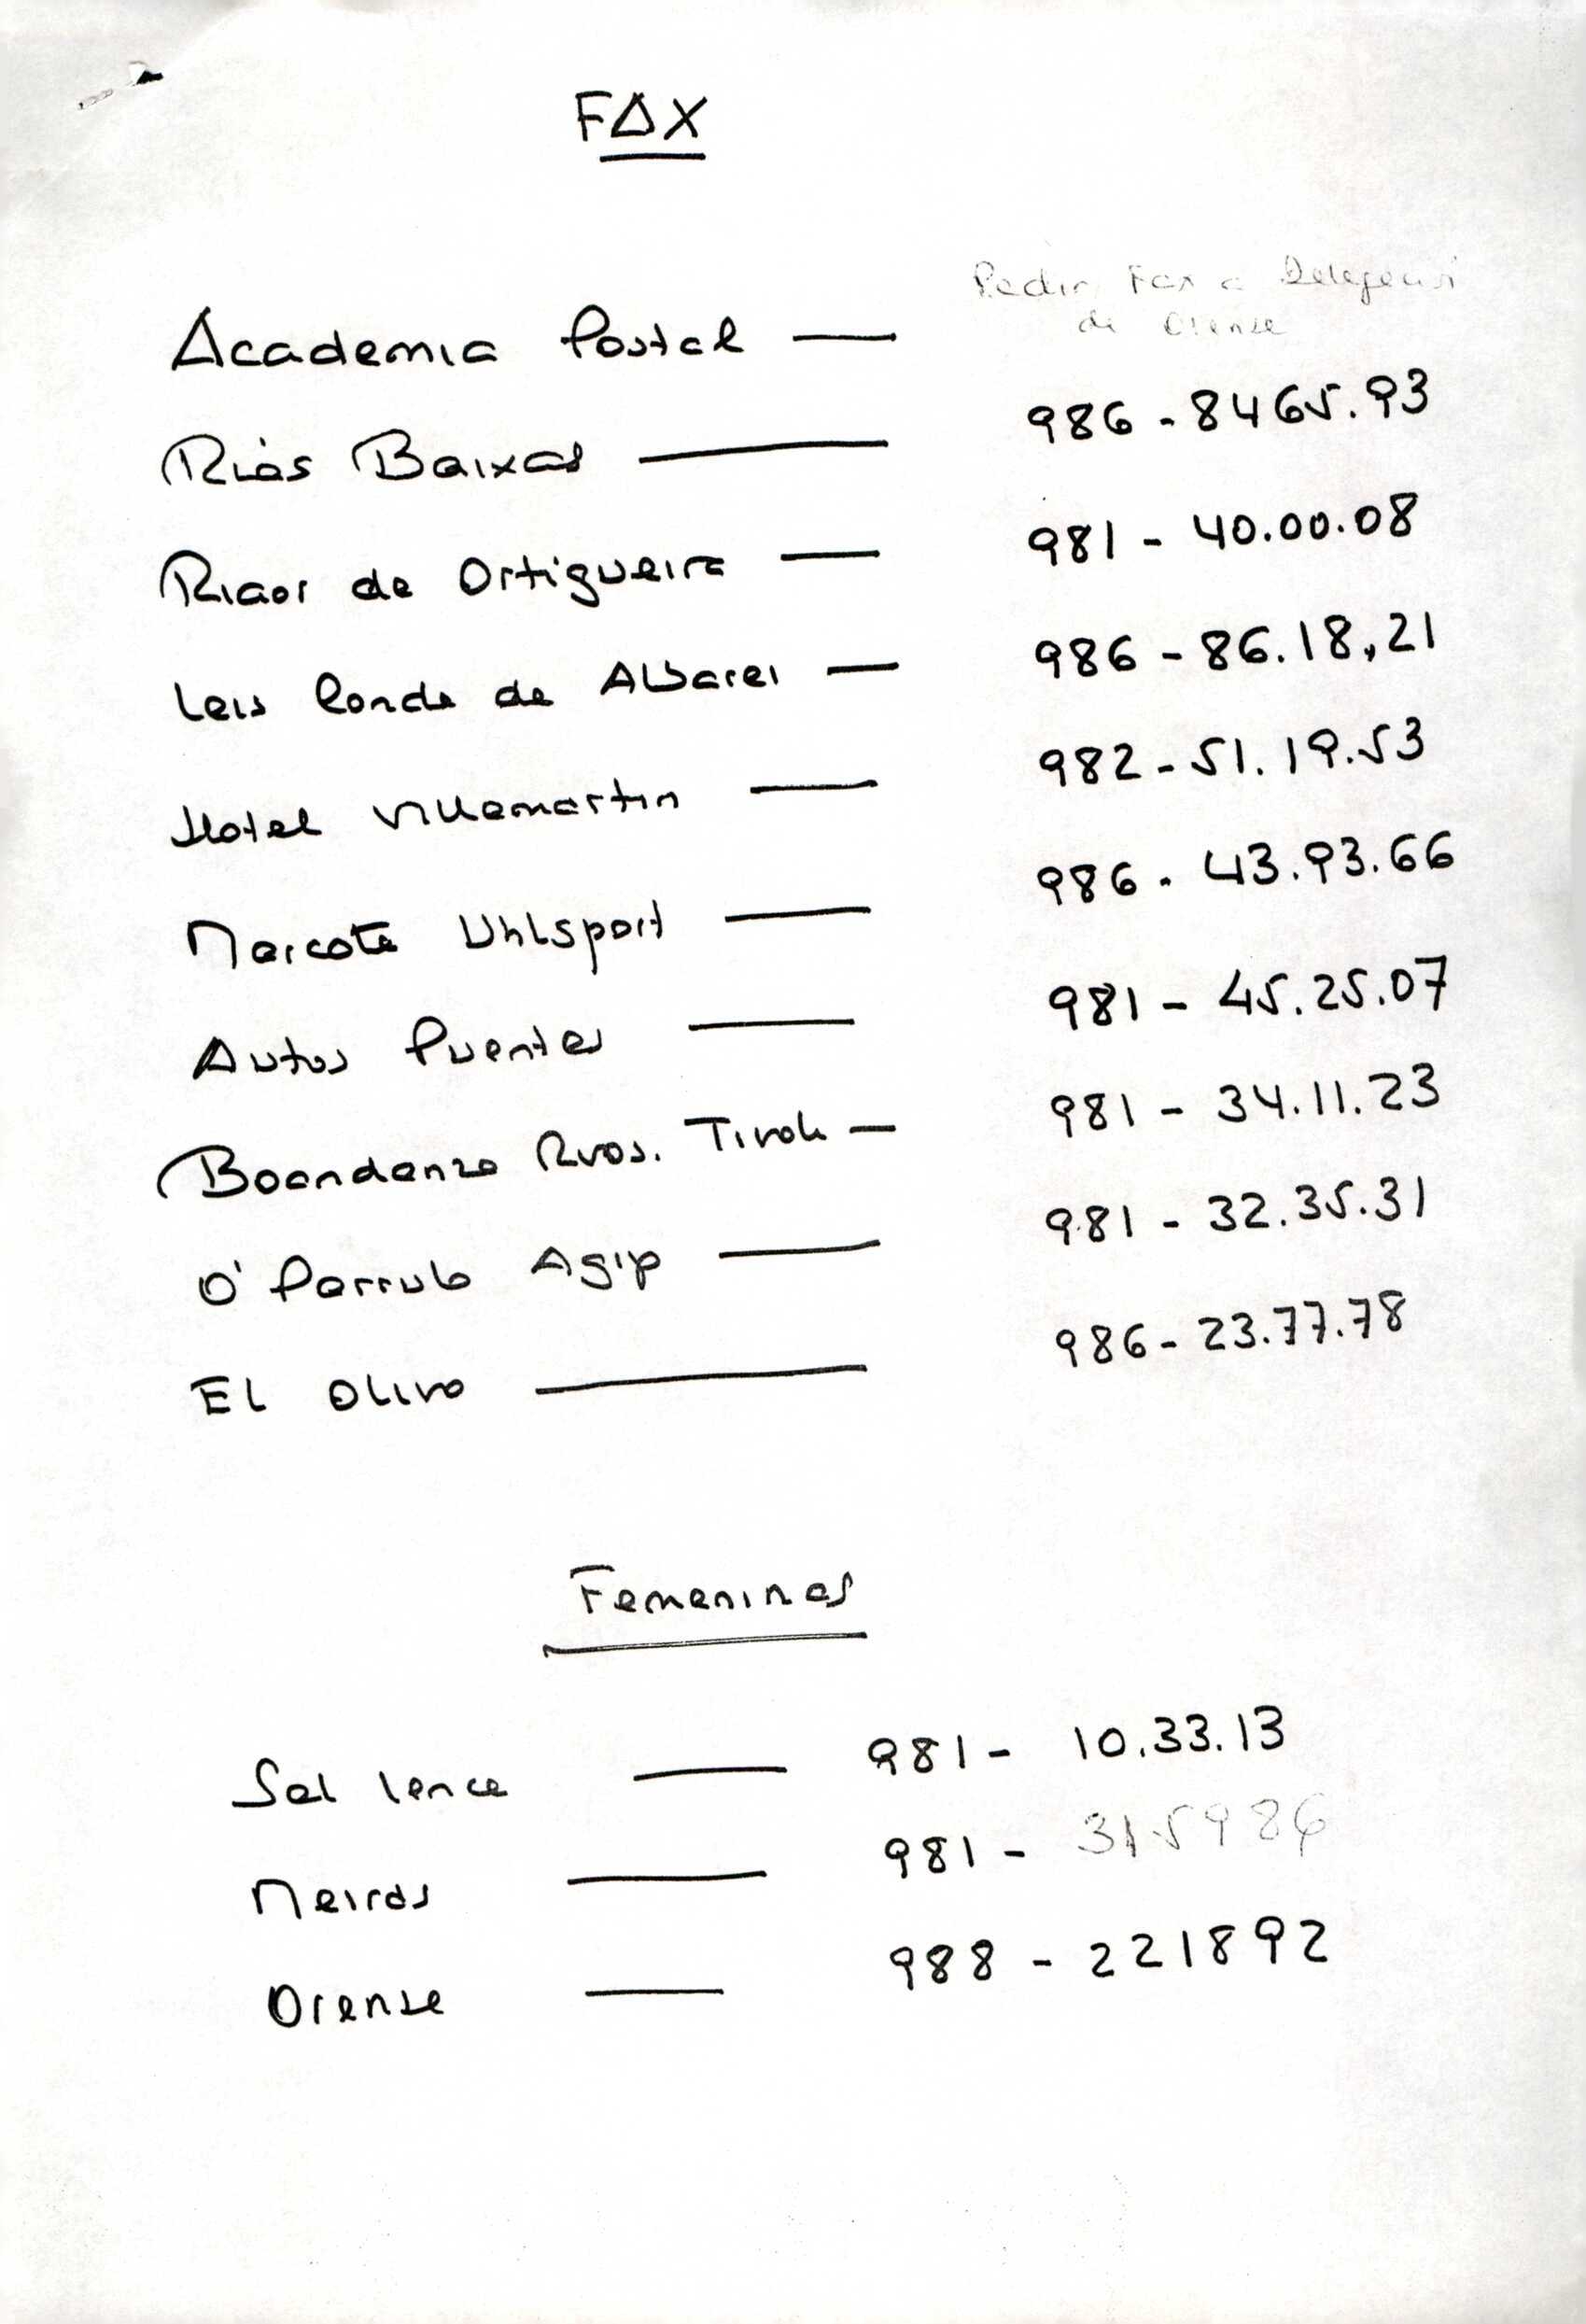 FAX
Pedir Fax a
de Orense
Academia Postal —
Rias Baixas — 986 - 8465.93
Riaor de Ortigueira — 981 - 40.00.08
Leis Conde de Albarei — 986 - 86.18,21
Hotel Villamartin — 982 - 51.19.53
Marcote Uhlsport — 986 - 43.93.66
Autos Puentes — 981 - 45.25.07
Boandanza Rvos. Tivoli — 981 - 34.11.23
O' Parrulo Agip — 981 - 32.35.31
El Olivo — 986 - 23.77.78
Femeninas
Sal Lence — 981 - 10.33.13
Meiras — 981 - 315986
Orense — 988 - 221892